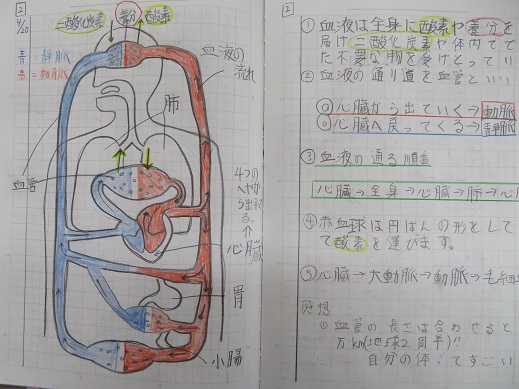 2
4/20
二酸化炭素
酸素
青=静脈
赤=動脈
血液の
流れ
肺
血管
4つの
心臓
胃
小腸
2
① 血液は全身に酸素や養分を
届け二酸化炭素や体内でで
た不要な物を受けとってい
② 血液の通り道を血管といい
◎心臓から出ていく→動脈
◎心臓へ戻ってくる→静脈
③ 血液の通る順番
心臓→全身→心臓→肺→心
④ 赤血球は円ばんの形をして
て酸素を運びます。
⑤ 心臓→大動脈→動脈→毛細
感想
◎ 血管の長さは合わせると
万km(地球2周半)!!
自分の体ってすごい